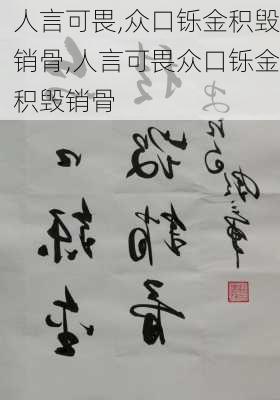 人言可畏,众口铄金积毁
销骨,人言可畏众口铄金
积毁销骨
口铄金
毁销骨